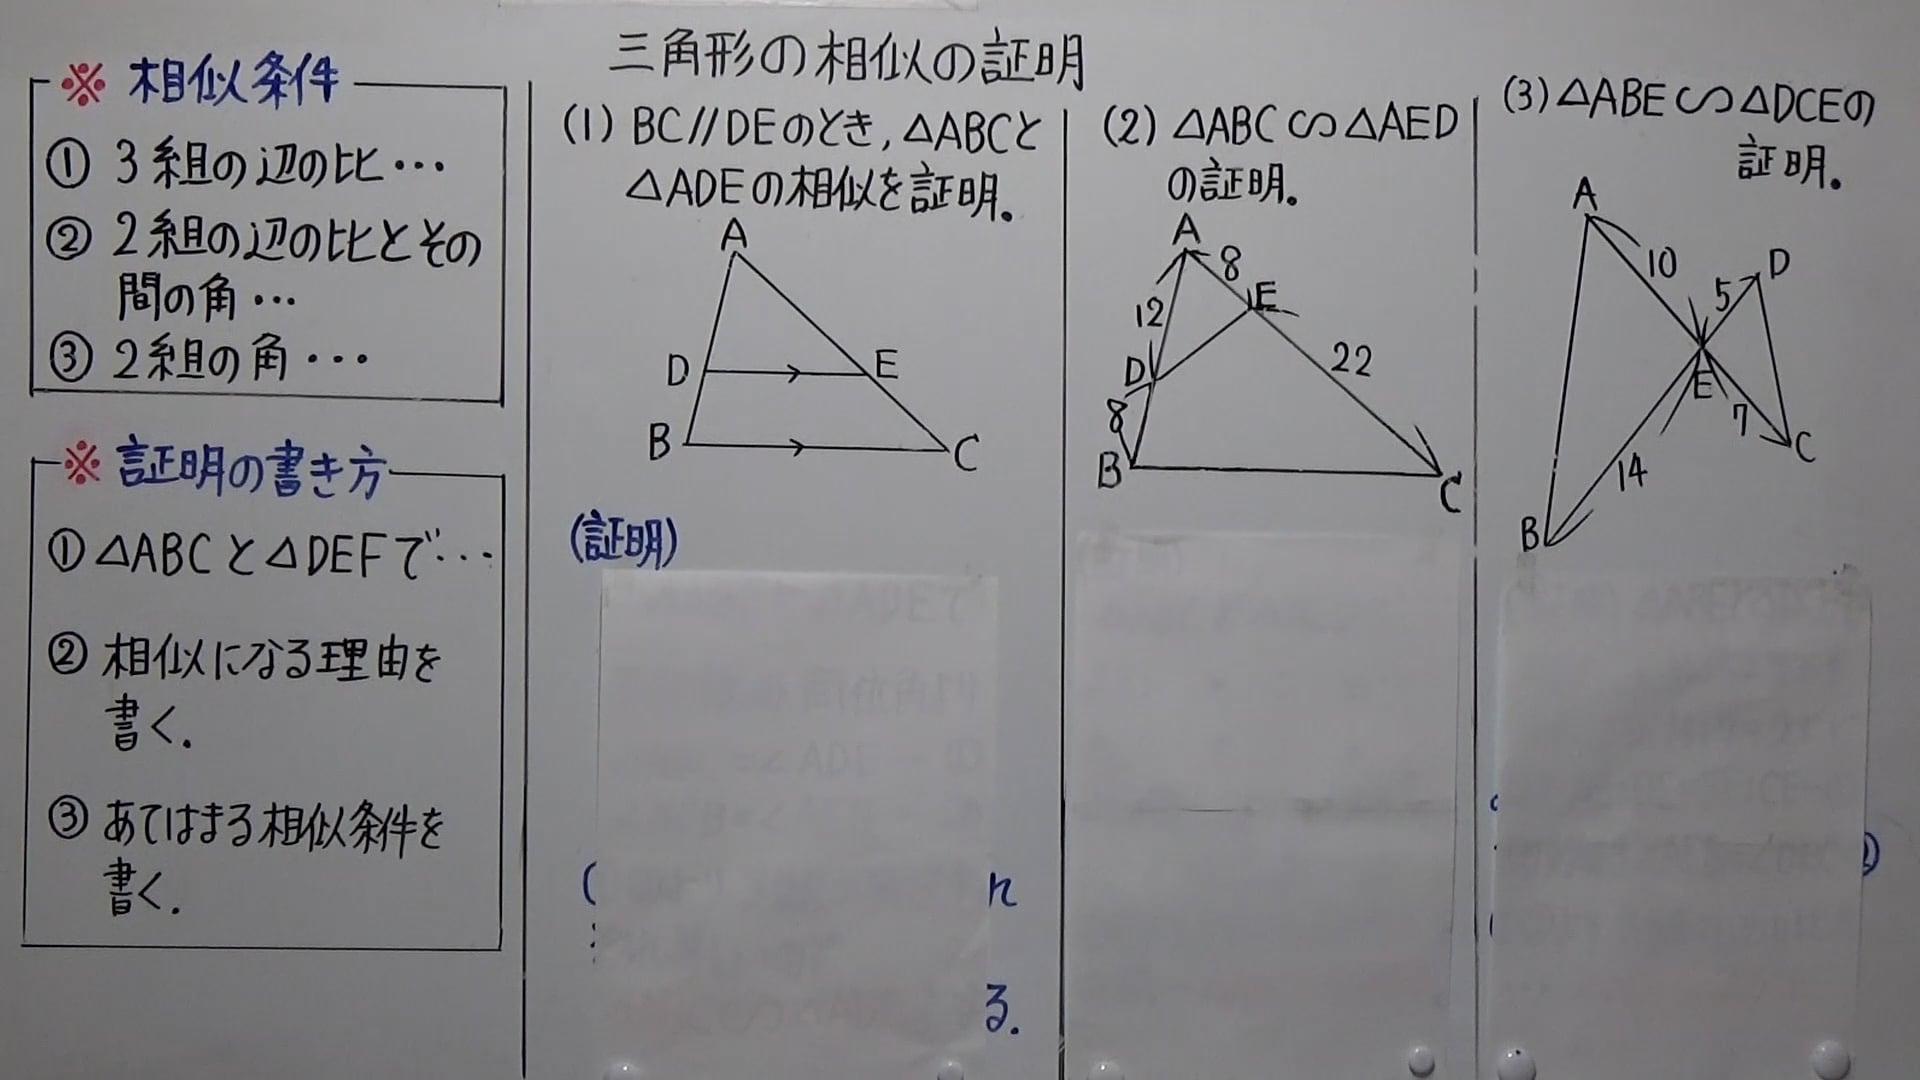 三角形の相似の証明
※ 相似条件
① 3組の辺の比…
② 2組の辺の比とその
間の角…
③ 2組の角…
※ 証明の書き方
① △ABCと△DEFで…
② 相似になる理由を
書く.
③ あてはまる相似条件を
書く.
(1) BC//DEのとき,△ABCと
△ADEの相似を証明.
A
D
E
B
C
(証明)
(
れ
る.
(2) △ABC∽△AED
の証明.
A
8
E
12
22
D
8
B
C
(3) △ABE∽△DCEの
証明.
A
10
D
5
E
7
C
14
B